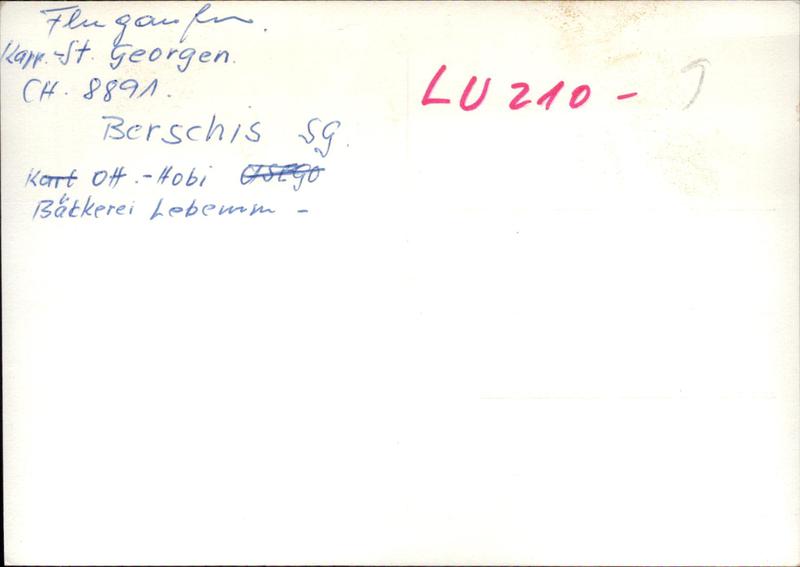 Flugaufn.
Kapp.-St. Georgen.
CH. 8891.
Berschis SG.
Kart Ott.-Hobi USEGO
Bäckerei Lebensm -
LU 210 -